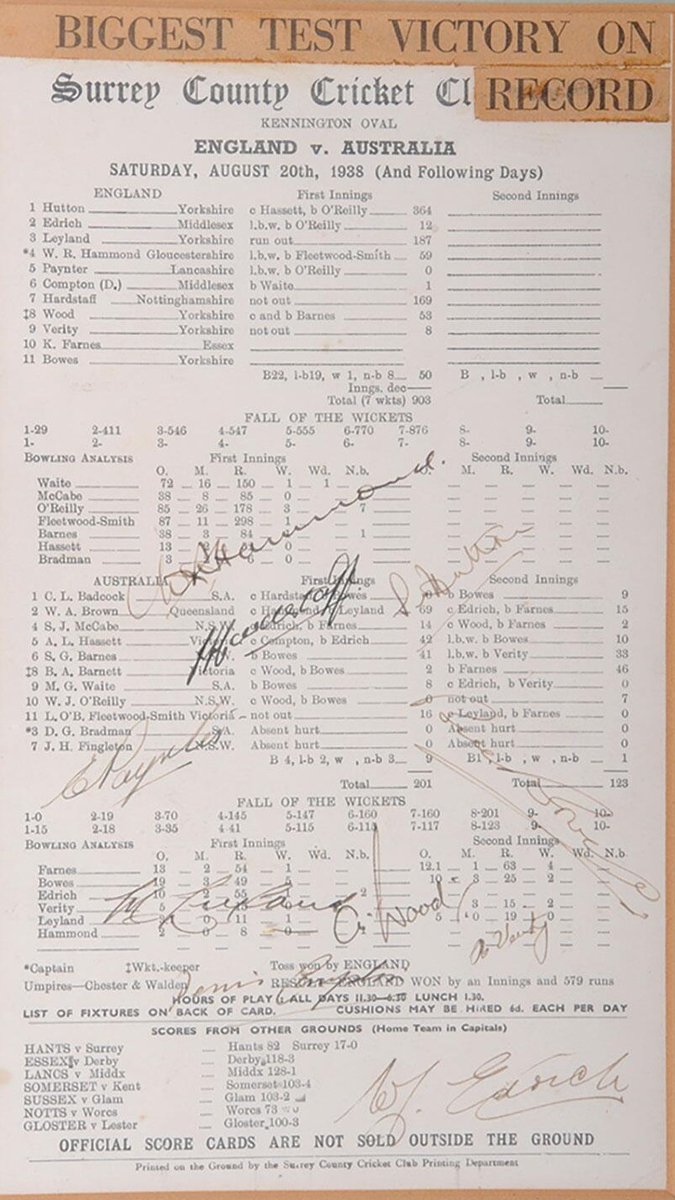 BIGGEST TEST VICTORY ON
RECORD
Surrey County Cricket Cl
KENNINGTON OVAL
ENGLAND v. AUSTRALIA
SATURDAY, AUGUST 20th, 1938 (And Following Days)
ENGLAND First Innings Second Innings
1 Hutton Yorkshire c Hassett, b O'Reilly 364
2 Edrich Middlesex l.b.w. b O'Reilly 12
3 Leyland Yorkshire run out 187
*4 W. R. Hammond Gloucestershire l.b.w. b Fleetwood-Smith 59
5 Paynter Lancashire l.b.w. b O'Reilly 0
6 Compton (D.) Middlesex b Waite 1
7 Hardstaff Nottinghamshire not out 169
‡8 Wood Yorkshire c and b Barnes 53
9 Verity Yorkshire not out 8
10 K. Farnes Essex
11 Bowes Yorkshire
B22, l-b19, w 1, n-b 8 50 B , l-b , w , n-b
Inngs. dec
Total (7 wkts) 903 Total
FALL OF THE WICKETS
1-29 2-411 3-546 4-547 5-555 6-770 7-876 8- 9- 10-
1- 2- 3- 4- 5- 6- 7- 8- 9- 10-
BOWLING ANALYSIS First Innings Second Innings
O. M. R. W. Wd. N.b. O. M. R. W. Wd. N.b.
Waite 72 16 150 1 1
McCabe 38 8 85 0
O'Reilly 85 26 178 3 7
Fleetwood-Smith 87 11 298 1
Barnes 38 3 84 1
Hassett 13 0
Bradman 3 0
W R Hammond.
L Hutton
AUSTRALIA First Innings Second Innings
1 C. L. Badcock S.A. c Hardstaff, b Bowes 0 b Bowes 9
2 W. A. Brown Queensland c Hammond, b Leyland 69 c Edrich, b Farnes 15
4 S. J. McCabe N.S.W. c Edrich, b Farnes 14 c Wood, b Farnes 2
5 A. L. Hassett Victoria c Compton, b Edrich 42 l.b.w. b Bowes 10
6 S. G. Barnes b Bowes 41 l.b.w. b Verity 33
‡8 B. A. Barnett Victoria c Wood, b Bowes 2 b Farnes 46
9 M. G. Waite S.A. b Bowes 8 c Edrich, b Verity 0
10 W. J. O'Reilly N.S.W. c Wood, b Bowes 0 not out 7
11 L. O'B. Fleetwood-Smith Victoria not out 16 c Leyland, b Farnes 0
*3 D. G. Bradman S.A. Absent hurt 0 Absent hurt 0
7 J. H. Fingleton N.S.W. Absent hurt 0 Absent hurt 0
B 4, l-b 2, w , n-b 3 9 B1, l-b , w , n-b 1
Total 201 Total 123
E Paynter
FALL OF THE WICKETS
1-0 2-19 3-70 4-145 5-147 6-160 7-160 8-201 9- 10-
1-15 2-18 3-35 4-41 5-115 6-115 7-117 8-123 9- 10-
BOWLING ANALYSIS First Innings Second Innings
O. M. R. W. Wd. N.b. O. M. R. W. Wd. N.b
Farnes 13 2 54 1 12.1 1 63 4
Bowes 19 3 49 5 10 3 25 2
Edrich 10 2 55 2
Verity 5 3 15 2
Leyland 0 11 1 5 0 19 0
Hammond 2 0 8 0
M Leyland
A. Wood
H Verity
*Captain ‡Wkt.-keeper Toss won by ENGLAND
Umpires—Chester & Walden ENGLAND WON by an Innings and 579 runs
Denis Compton
HOURS OF PLAY ALL DAYS 11.30—6.30 LUNCH 1.30.
LIST OF FIXTURES ON BACK OF CARD. CUSHIONS MAY BE HIRED 6d. EACH PER DAY
SCORES FROM OTHER GROUNDS (Home Team in Capitals)
HANTS v Surrey Hants 82 Surrey 17-0
ESSEX v Derby Derby 118-3
LANCS v Middx Middx 128-1
SOMERSET v Kent Somerset 103-4
SUSSEX v Glam Glam 103-2
NOTTS v Worcs Worcs 73
GLOSTER v Lester Gloster 100-3
W J Edrich
OFFICIAL SCORE CARDS ARE NOT SOLD OUTSIDE THE GROUND
Printed on the Ground by the Surrey County Cricket Club Printing Department